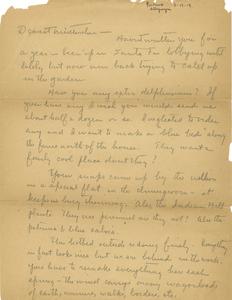 Dearest
Haven't written you for
a year - been up in Santa Fe lobbying
lately, but now am back trying to catch up
in the garden.
Have you any extra delphiniums? If
you have any I wish you would send me
about half a dozen or so. I neglected to order
any and I want to make a blue bed along
the fence north of the house. They want a
fairly cool place don't they?
Your snaps came up by the million
in a special flat in the diningroom - at
keeping busy thinning. Also the Indian
plants. They are perennial are they not? Also the
petunias & blue salvia.
The bulbed outside coming finely. Everything
in fact looks nice but we are behind in the work.
You have to remake everything here each
spring - this must carry on many wagonloads
of earth, manure, walks, borders, etc.